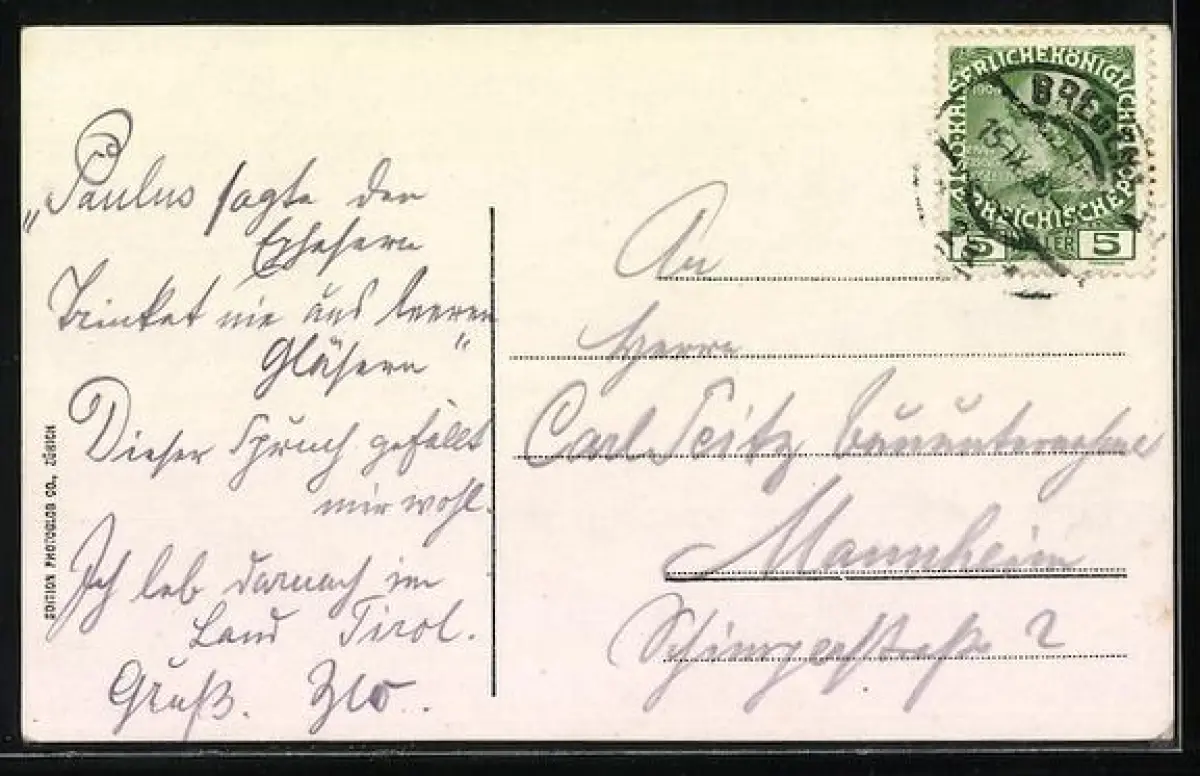 „Paulus sagte den
Ephesern
Trinket nie aus leeren
Gläsern"
Dieser Spruch gefällt
mir wohl.
Ich leb darnach im
Land Tirol.
Gruß.
EDITION PHOTOGLOB CO., ZÜRICH
KAISERLICHE KÖNIGLICHE
ÖSTERREICHISCHE POST
5 HELLER 5
1908
BREGENZ
15 IX
An
Herrn
Carl Seitz Bauunternehmer
Mannheim
2